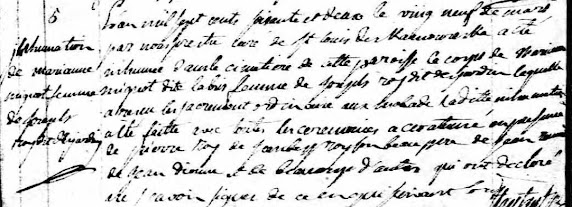 5
inhumation
de marianne
mignot femme
de joseph
roy dit Dejardin
L'an mil sept cents soixante et deux le vingt neuf de mars
par nous prestre curé de St Louis de Kamouraska a été
inhumée dans le cimetière de cette paroisse le corps de Marianne
mignot dite labrie femme de joseph roy dit dejardin laquelle
a reçu les sacrement ordinaire aux malade la ditte inhumation
a été faitte avec toutes les ceremonies a
de pierre roy de joseph roy son beau pere de jean
de jean dionne et de beaucoup d'autres qui ont declaré
ne scavoir signer de ce enquis suivant